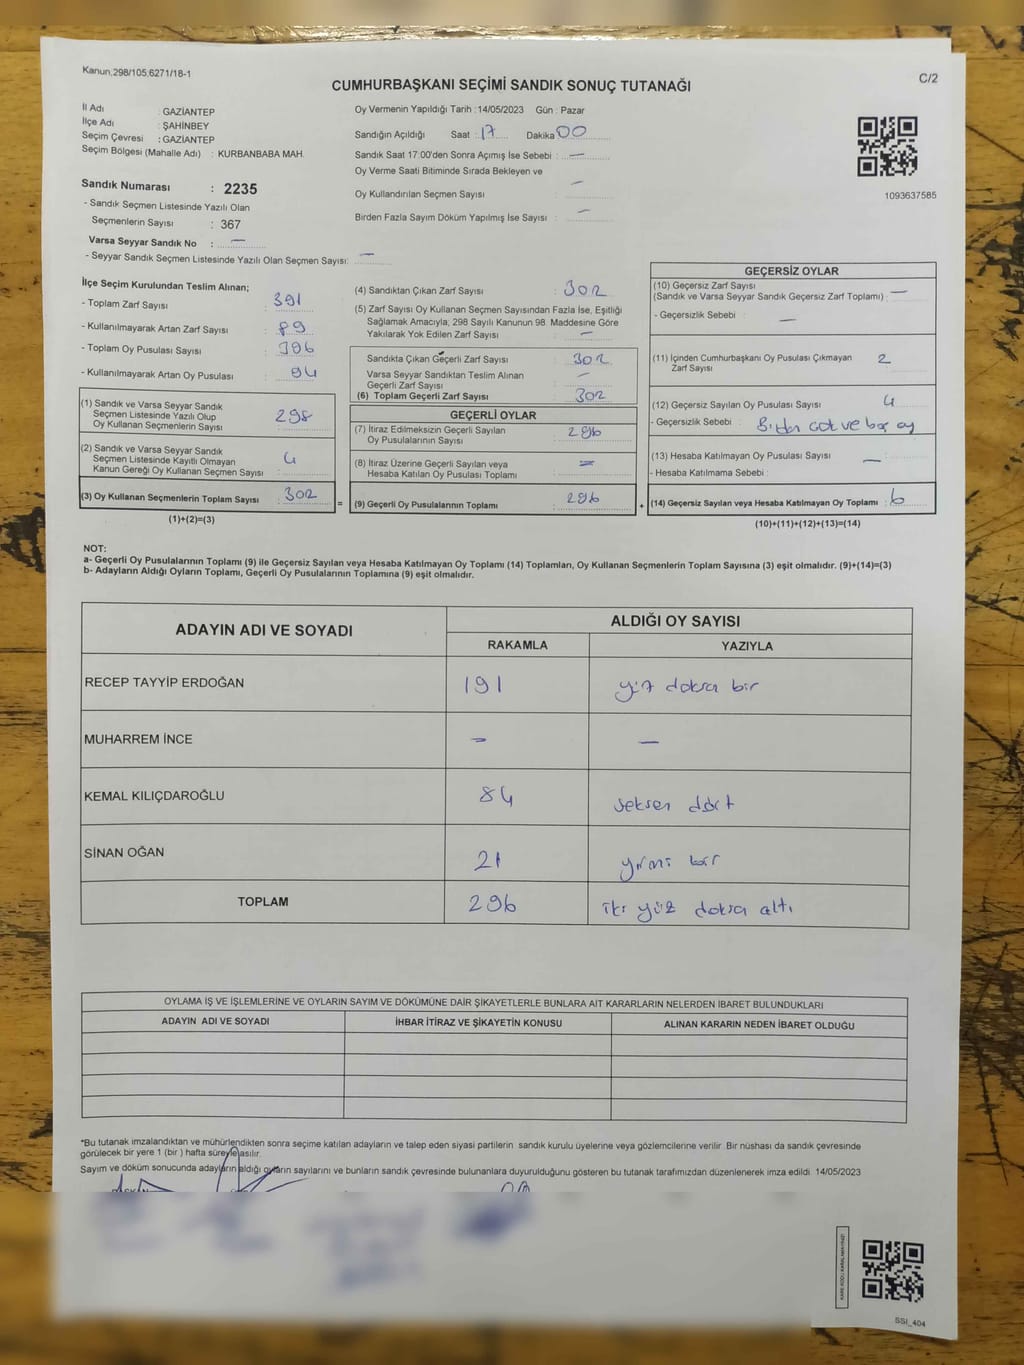 Kanun,298/105,6271/18-1
C/2
CUMHURBAŞKANI SEÇİMİ SANDIK SONUÇ TUTANAĞI
İl Adı : GAZİANTEP
İlçe Adı : ŞAHİNBEY
Seçim Çevresi : GAZİANTEP
Seçim Bölgesi (Mahalle Adı) : KURBANBABA MAH.
Oy Vermenin Yapıldığı Tarih :14/05/2023 Gün : Pazar
Sandığın Açıldığı Saat : 17 Dakika 00
Sandık Saat 17:00'den Sonra Açımış İse Sebebi : —
Oy Verme Saati Bitiminde Sırada Bekleyen ve
Oy Kullandırılan Seçmen Sayısı —
Birden Fazla Sayım Döküm Yapılmış İse Sayısı : —
1093637585
Sandık Numarası : 2235
- Sandık Seçmen Listesinde Yazılı Olan
Seçmenlerin Sayısı : 367
Varsa Seyyar Sandık No : —
- Seyyar Sandık Seçmen Listesinde Yazılı Olan Seçmen Sayısı: —
İlçe Seçim Kurulundan Teslim Alınan;
- Toplam Zarf Sayısı : 391
- Kullanılmayarak Artan Zarf Sayısı : 89
- Toplam Oy Pusulası Sayısı : 396
- Kullanılmayarak Artan Oy Pusulası : 94
(1) Sandık ve Varsa Seyyar Sandık
Seçmen Listesinde Yazılı Olup
Oy Kullanan Seçmenlerin Sayısı : 298
(2) Sandık ve Varsa Seyyar Sandık
Seçmen Listesinde Kayıtlı Olmayan
Kanun Gereği Oy Kullanan Seçmen Sayısı : 4
(3) Oy Kullanan Seçmenlerin Toplam Sayısı : 302
(1)+(2)=(3)
(4) Sandıktan Çıkan Zarf Sayısı : 302
(5) Zarf Sayısı Oy Kullanan Seçmen Sayısından Fazla İse, Eşitliği
Sağlamak Amacıyla, 298 Sayılı Kanunun 98. Maddesine Göre
Yakılarak Yok Edilen Zarf Sayısı : —
Sandıkta Çıkan Geçerli Zarf Sayısı : 302
Varsa Seyyar Sandıktan Teslim Alınan
Geçerli Zarf Sayısı : —
(6) Toplam Geçerli Zarf Sayısı : 302
GEÇERLİ OYLAR
(7) İtiraz Edilmeksizin Geçerli Sayılan
Oy Pusulalarının Sayısı : 296
(8) İtiraz Üzerine Geçerli Sayılan veya
Hesaba Katılan Oy Pusulası Toplamı : —
= (9) Geçerli Oy Pusulalarının Toplamı : 296
GEÇERSİZ OYLAR
(10) Geçersiz Zarf Sayısı
(Sandık ve Varsa Seyyar Sandık Geçersiz Zarf Toplamı) : —
- Geçersizlik Sebebi : —
(11) İçinden Cumhurbaşkanı Oy Pusulası Çıkmayan
Zarf Sayısı : 2
(12) Geçersiz Sayılan Oy Pusulası Sayısı : 4
- Geçersizlik Sebebi : Birden çok ve boş oy
(13) Hesaba Katılmayan Oy Pusulası Sayısı : —
- Hesaba Katılmama Sebebi :
+ (14) Geçersiz Sayılan veya Hesaba Katılmayan Oy Toplamı : 6
(10)+(11)+(12)+(13)=(14)
NOT:
a- Geçerli Oy Pusulalarının Toplamı (9) ile Geçersiz Sayılan veya Hesaba Katılmayan Oy Toplamı (14) Toplamları, Oy Kullanan Seçmenlerin Toplam Sayısına (3) eşit olmalıdır. (9)+(14)=(3)
b- Adayların Aldığı Oyların Toplamı, Geçerli Oy Pusulalarının Toplamına (9) eşit olmalıdır.
ADAYIN ADI VE SOYADI ALDIĞI OY SAYISI
RAKAMLA YAZIYLA
RECEP TAYYİP ERDOĞAN 191 yüz doksa bir
MUHARREM İNCE — —
KEMAL KILIÇDAROĞLU 84 seksen dört
SİNAN OĞAN 21 yirmi bir
TOPLAM 296 iki yüz doksa altı
OYLAMA İŞ VE İŞLEMLERİNE VE OYLARIN SAYIM VE DÖKÜMÜNE DAİR ŞİKAYETLERLE BUNLARA AİT KARARLARIN NELERDEN İBARET BULUNDUKLARI
ADAYIN ADI VE SOYADI İHBAR İTİRAZ VE ŞİKAYETİN KONUSU ALINAN KARARIN NEDEN İBARET OLDUĞU
*Bu tutanak imzalandıktan ve mühürlendikten sonra seçime katılan adayların ve talep eden siyasi partilerin sandık kurulu üyelerine veya gözlemcilerine verilir. Bir nüshası da sandık çevresinde
görülecek bir yere 1 (bir ) hafta süreyle asılır.
Sayım ve döküm sonucunda adayların aldığı oyların sayılarını ve bunların sandık çevresinde bulunanlara duyurulduğunu gösteren bu tutanak tarafımızdan düzenlenerek imza edildi 14/05/2023
SSI_404